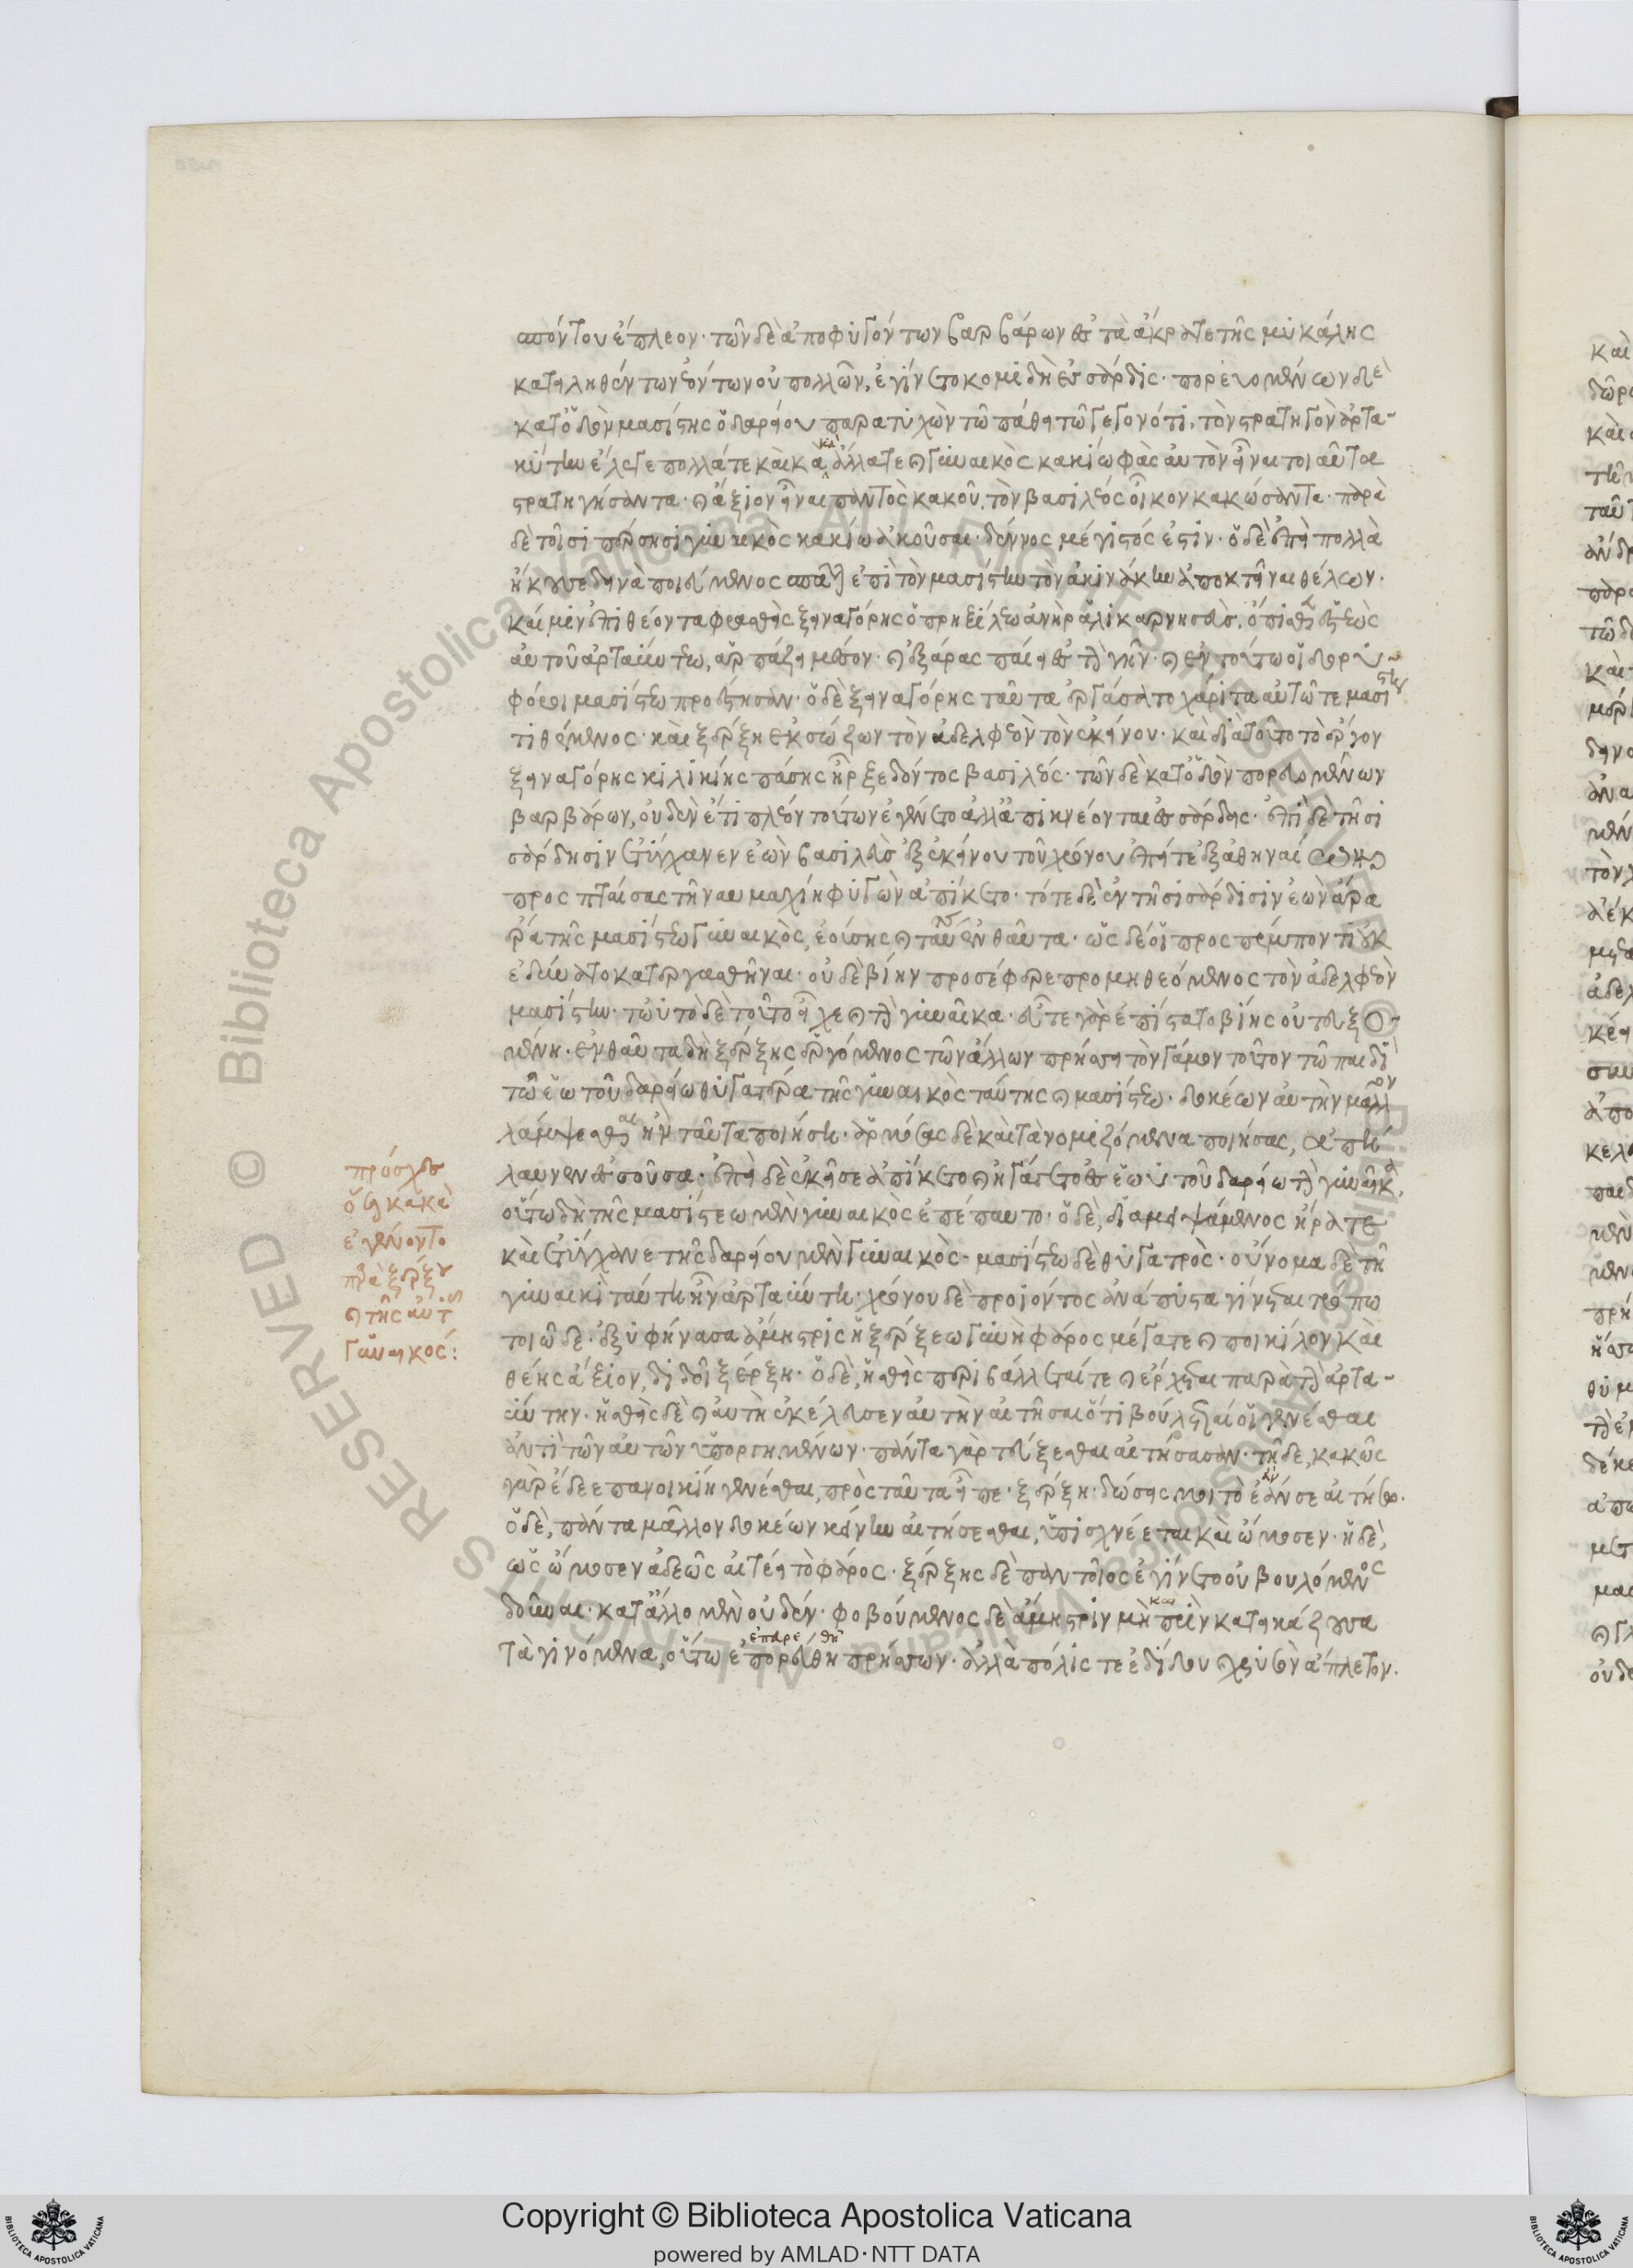 σπόντου ἔπλεον· τῶν δὲ ἀποφυγόντων βαρβάρων ἐς τὰ ἄκρα τε τῆς μυκάλης
κατειληθέντων ἐόντων οὐ πολλῶν, ἐγίνετο κομιδὴ ἐς σάρδις· πορευομένων δὲ
κατ' ὁδὸν μασίστης ὁ δαρείου παρατυχὼν τῶ πάθει τῶ γεγονότι, τὸν στρατηγὸν ἀρτα-
ΰντην ἔλεγε πολλά τε καὶ κακὰ ἄλλα τε καὶ γυναικὸς κακίω φὰς αὐτὸν εἶναι τοιαῦτα
στρατηγήσαντα· καὶ ἄξιον εἶναι παντὸς κακοῦ, τὸν βασιλέος οἶκον κακώσαντα· παρὰ
δὲ τοῖσι πέρσησι γυναικὸς κακίω ἀκοῦσαι δέννος μέγιστός ἐστιν· ὁ δὲ ἐπεὶ πολλὰ
ἤκουσε δεινὰ ποιεύμενος σπᾶται ἐπὶ τὸν μασίστην τὸν ἀκινάκην ἀποκτεῖναι θέλων·
καί μιν ἐπιθέοντα φρασθεὶς ξειναγόρης ὁ πρηξίλεω ἀνὴρ ἁλικαρνησεὺς, ὄπισθε ἑστεὼς
αὐτοῦ ἀρταΰντεω, ἁρπάζει μέσον· καὶ ἐξάρας παίει ἐς τὴν γῆν· καὶ ἐν τούτω οἱ δορυ-
φόροι μασίστεω προέστησαν· ὁ δὲ ξειναγόρης ταῦτα ἐργάσατο χάριτα αὐτῶ τε μασίστη
τιθέμενος· καὶ ξέρξη ἐκσώζων τὸν ἀδελφεὸν τὸν ἐκείνου· καὶ διὰ τοῦτο τὸ ἔργον
ξειναγόρης κιλικίης πάσης ἦρξε δόντος βασιλέος· τῶν δὲ κατ' ὁδὸν πορευομένων
βαρβάρων, οὐδὲν ἔτι πλέον τούτων ἐγένετο ἀλλ' ἀπικνέονται ἐς σάρδις· ἐπὶ δὲ τῆσι
σάρδησιν ἐτύγχανεν ἐὼν βασιλεὺς ἐξ ἐκείνου τοῦ χρόνου ἐπεί τε ἐξ ἀθηναίων
προσπταίσας τῆ ναυμαχίη φυγὼν ἀπίκετο· τότε δὲ ἐν τῆσι σάρδισιν ἐὼν ἄρα
ἤρα τῆς μασίστεω γυναικὸς, ἐούσης καὶ ταύτης ἐνθαῦτα· ὡς δέ οἱ προσπέμποντι οὐκ
ἐδύνατο κατεργασθῆναι· οὐδὲ βίην προσέφερε προμηθεόμενος τὸν ἀδελφεὸν
μασίστην· τὠυτὸ δὲ τοῦτο εἶχε καὶ τὴν γυναῖκα· εὖ τε γὰρ ἐπίστατο βίης οὐ τευξο-
μένη· ἐνθαῦτα δὴ ξέρξης ἐργόμενος τῶν ἄλλων πρήσσει τὸν γάμον τοῦτον τῶ παιδὶ
τῶ ἑωυτοῦ δαρείω θυγατέρα τῆς γυναικὸς ταύτης καὶ μασίστεω· δοκέων αὐτὴν μᾶλλον
λάμψεσθαι ἢν ταῦτα ποιήση· ἁρμόσας δὲ καὶ τὰ νομιζόμενα ποιήσας, ἀπή-
λαυνεν ἐς σοῦσα· ἐπεὶ δὲ ἐκεῖσε ἀπίκετο καὶ ἠγάγετο ἐς ἑωυτοῦ δαρείω τὴν γυναῖκα,
οὕτω δὴ τῆς μασίστεω μὲν γυναικὸς ἐπέπαυτο· ὁ δὲ, διαμειψάμενος ἤρα τε
καὶ ἐτύγχανε τῆς δαρείου μὲν γυναικὸς· μασίστεω δὲ θυγατρὸς· οὔνομα δὲ τῆ
γυναικὶ ταύτη ἦν ἀρταΰντη· χρόνου δὲ προϊόντος ἀνάπυστα γίνεται τρόπω
τοιῶδε· ἐξυφήνασα ἄμηστρις ἡ ξέρξεω γυνὴ φᾶρος μέγα τε καὶ ποικίλον καὶ
θέης ἄξιον, διδοῖ ξέρξη· ὁ δὲ, ἡσθεὶς περιβάλλεταί τε καὶ ἔρχεται παρὰ τὴν ἀρτα-
ΰντην· ἡσθεὶς δὲ καὶ αὐτῆ ἐκέλευσεν αὐτὴν αἰτῆσαι ὅτι βούλεταί οἱ γενέσθαι
ἀντὶ τῶν αὐτῶν ὑπουργημένων· πάντα γὰρ τεύξεσθαι αἰτήσασαν· τῆ δὲ, κακῶς
γὰρ ἔδεε πανοικίη γενέσθαι, πρὸς ταῦτα εἶπε ξέρξη· δώσεις μοι τὸ ἄν σε αἰτήσω·
ὁ δὲ, πάντα μᾶλλον δοκέων κείνην αἰτήσεσθαι, ὑπισχνέεται καὶ ὤμοσεν· ἡ δὲ,
ὡς ὤμοσεν ἀδεῶς αἰτέει τὸ φᾶρος· ξέρξης δὲ παντοῖος ἐγίνετο οὐ βουλόμενος
δοῦναι· κατ' ἄλλο μὲν οὐδέν· φοβούμενος δὲ ἄμηστριν μὴ καὶ πρὶν κατεικάζουσα
τὰ γινόμενα, οὕτω ἐπορεύθη πρήσσων· ἀλλὰ πόλις τε ἐδίδου καὶ χρυσὸν ἄπλετον·
επαρε θῆ
πρόσχες
ὅσα κακὰ
ἐγένοντο
παρὰ ξέρξου
καὶ τῆς αὐτοῦ
γυναικός:
Copyright © Biblioteca Apostolica Vaticana
powered by AMLAD·NTT DATA